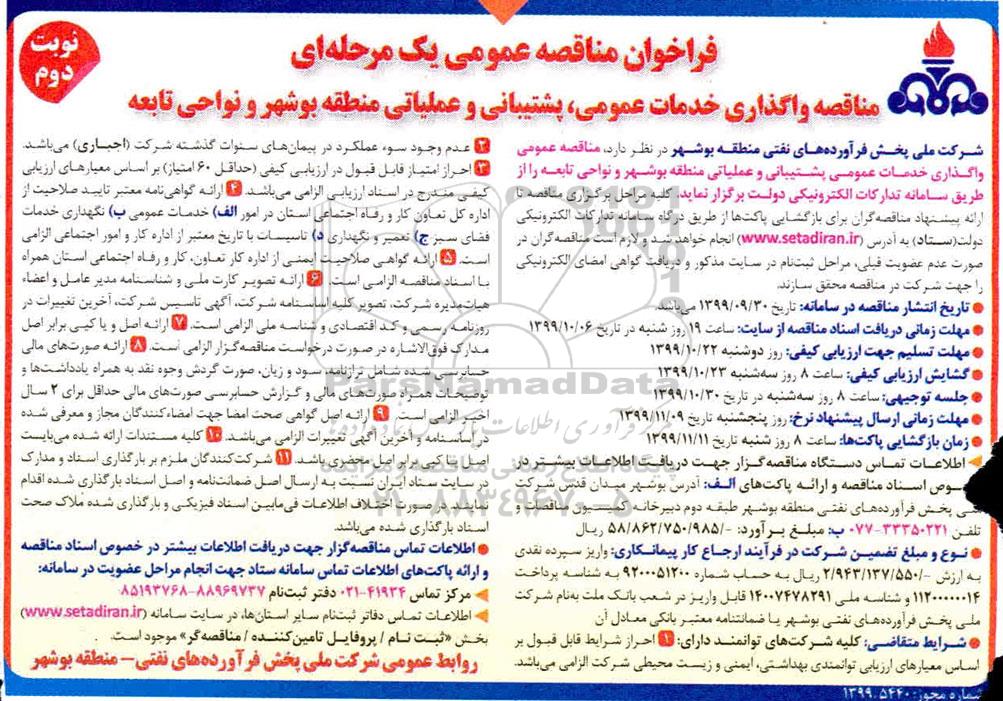 نوبت
دوم
فراخوان مناقصه عمومی یک مرحله‌ای
مناقصه واگذاری خدمات عمومی، پشتیبانی و عملیاتی منطقه بوشهر و نواحی تابعه
شرکت ملی پخش فرآورده‌های نفتی منطقه بوشهر در نظر دارد، مناقصه عمومی
واگذاری خدمات عمومی پشتیبانی و عملیاتی منطقه بوشهر و نواحی تابعه را از
طریق سامانه تدارکات الکترونیکی دولت برگزار نماید. کلیه مراحل برگزاری مناقصه تا
ارائه پیشنهاد مناقصه‌گران برای بازگشایی پاکت‌ها از طریق درگاه سامانه تدارکات الکترونیکی
دولت(ستاد) به آدرس (www.setadiran.ir) انجام خواهد شد و لازم است مناقصه‌گران در
صورت عدم عضویت قبلی، مراحل ثبت‌نام در سایت مذکور و دریافت گواهی امضای الکترونیکی
را جهت شرکت در مناقصه محقق سازند.
● تاریخ انتشار مناقصه در سامانه: تاریخ ۱۳۹۹/۰۹/۳۰ می‌باشد.
● مهلت زمانی دریافت اسناد مناقصه از سایت: ساعت ۱۹ روز شنبه در تاریخ ۱۳۹۹/۱۰/۰۶
● مهلت تسلیم جهت ارزیابی کیفی: روز دوشنبه ۱۳۹۹/۱۰/۲۲
● گشایش ارزیابی کیفی: ساعت ۸ روز سه‌شنبه ۱۳۹۹/۱۰/۲۳
● جلسه توجیهی: ساعت ۸ روز سه‌شنبه در تاریخ ۱۳۹۹/۱۰/۳۰
● مهلت زمانی ارسال پیشنهاد نرخ: روز پنجشنبه تاریخ ۱۳۹۹/۱۱/۰۹
● زمان بازگشایی پاکت‌ها: ساعت ۸ روز شنبه تاریخ ۱۳۹۹/۱۱/۱۱
◄ اطلاعات تماس دستگاه مناقصه‌گزار جهت دریافت اطلاعات بیشتر در
اسناد مناقصه و ارائه پاکت‌های الف: آدرس بوشهر میدان قدس شرکت
پخش فرآورده‌های نفتی منطقه بوشهر طبقه دوم دبیرخانه کمیسیون مناقصات و
تلفن ۳۳۳۵۰۲۲۱-۰۷۷ ب: مبلغ برآورد: -/۵۸/۸۶۲/۷۵۰/۹۸۵ ریال
● نوع و مبلغ تضمین شرکت در فرآیند ارجاع کار پیمانکاری: واریز سپرده نقدی
به ارزش -/۲/۹۴۳/۱۳۷/۵۵۰ ریال به حساب شماره ۹۲۰۰۰۵۱۲۰۰ به شناسه پرداخت
۱۱۲۰۰۰۰۰۱۴ و شناسه ملی ۱۴۰۰۷۴۷۸۲۹۱ قابل واریز در شعب بانک ملت به‌نام شرکت
ملی پخش فرآورده‌های نفتی بوشهر یا ضمانتنامه معتبر بانکی معادل آن
● شرایط متقاضی: کلیه شرکت‌های توانمند دارای: ۱ احراز شرایط قابل قبول بر
اساس معیارهای ارزیابی توانمندی بهداشتی، ایمنی و زیست محیطی شرکت الزامی می‌باشد.
۲ عدم وجود سوء عملکرد در پیمان‌های سنوات گذشته شرکت (اجباری) می‌باشد.
۳ احراز امتیاز قابل قبول در ارزیابی کیفی (حداقل ۶۰ امتیاز) بر اساس معیارهای ارزیابی
کیفی مندرج در اسناد ارزیابی الزامی می‌باشد. ۴ ارائه گواهی‌نامه معتبر تایید صلاحیت از
اداره کل تعاون کار و رفاه اجتماعی استان در امور الف) خدمات عمومی ب) نگهداری خدمات
فضای سبز ج) تعمیر و نگهداری د) تاسیسات با تاریخ معتبر از اداره کار و امور اجتماعی الزامی
است. ۵ ارائه گواهی صلاحیت ایمنی از اداره کار تعاون، کار و رفاه اجتماعی استان همراه
با اسناد مناقصه الزامی است. ۶ ارائه تصویر کارت ملی و شناسنامه مدیر عامل و اعضاء
هیات‌مدیره شرکت، تصویر کلیه اساسنامه شرکت، آگهی تاسیس شرکت، آخرین تغییرات در
روزنامه رسمی و کد اقتصادی و شناسه ملی الزامی است. ۷ ارائه اصل و یا کپی برابر اصل
مدارک فوق‌الاشاره در صورت درخواست مناقصه‌گزار الزامی است. ۸ ارائه صورت‌های مالی
حسابرسی شده شامل ترازنامه، سود و زیان، صورت گردش وجوه نقد به همراه یادداشت‌ها و
توضیحات همراه صورت‌های مالی و گزارش حسابرسی صورت‌های مالی حداقل برای ۲ سال
اخیر الزامی است. ۹ ارائه اصل گواهی صحت امضا جهت امضاءکنندگان مجاز و معرفی شده
در اساسنامه و آخرین آگهی تغییرات الزامی می‌باشد. ۱۰ کلیه مستندات ارائه شده می‌بایست
اصل یا کپی برابر اصل محضری باشد. ۱۱ شرکت‌کنندگان ملزم بر بارگذاری اسناد و مدارک
در سایت ستاد ایران نسبت به ارسال اصل ضمانت‌نامه و اصل اسناد بارگذاری شده اقدام
نمایند. در صورت اختلاف اطلاعات فی‌مابین اسناد فیزیکی و بارگذاری شده ملاک صحت
اسناد بارگذاری شده می‌باشد.
● اطلاعات تماس مناقصه‌گزار جهت دریافت اطلاعات بیشتر در خصوص اسناد مناقصه
و ارائه پاکت‌های اطلاعات تماس سامانه ستاد جهت انجام مراحل عضویت در سامانه:
◄ مرکز تماس ۴۱۹۳۴-۰۲۱ دفتر ثبت‌نام ۸۸۹۶۹۷۳۷-۸۵۱۹۳۷۶۸
◄ اطلاعات تماس دفاتر ثبت‌نام سایر استان‌ها، در سایت سامانه (www.setadiran.ir)
بخش «ثبت نام / پروفایل تامین‌کننده / مناقصه‌گر» موجود است.
روابط عمومی شرکت ملی پخش فرآورده‌های نفتی- منطقه بوشهر
شماره مجوز: ۱۳۹۹.۵۴۴۰
ParsNamadData
پایگاه اطلاع رسانی مناقصه و مزایده
۰۲۱-۸۸۳۴۹۶۷۰-۵